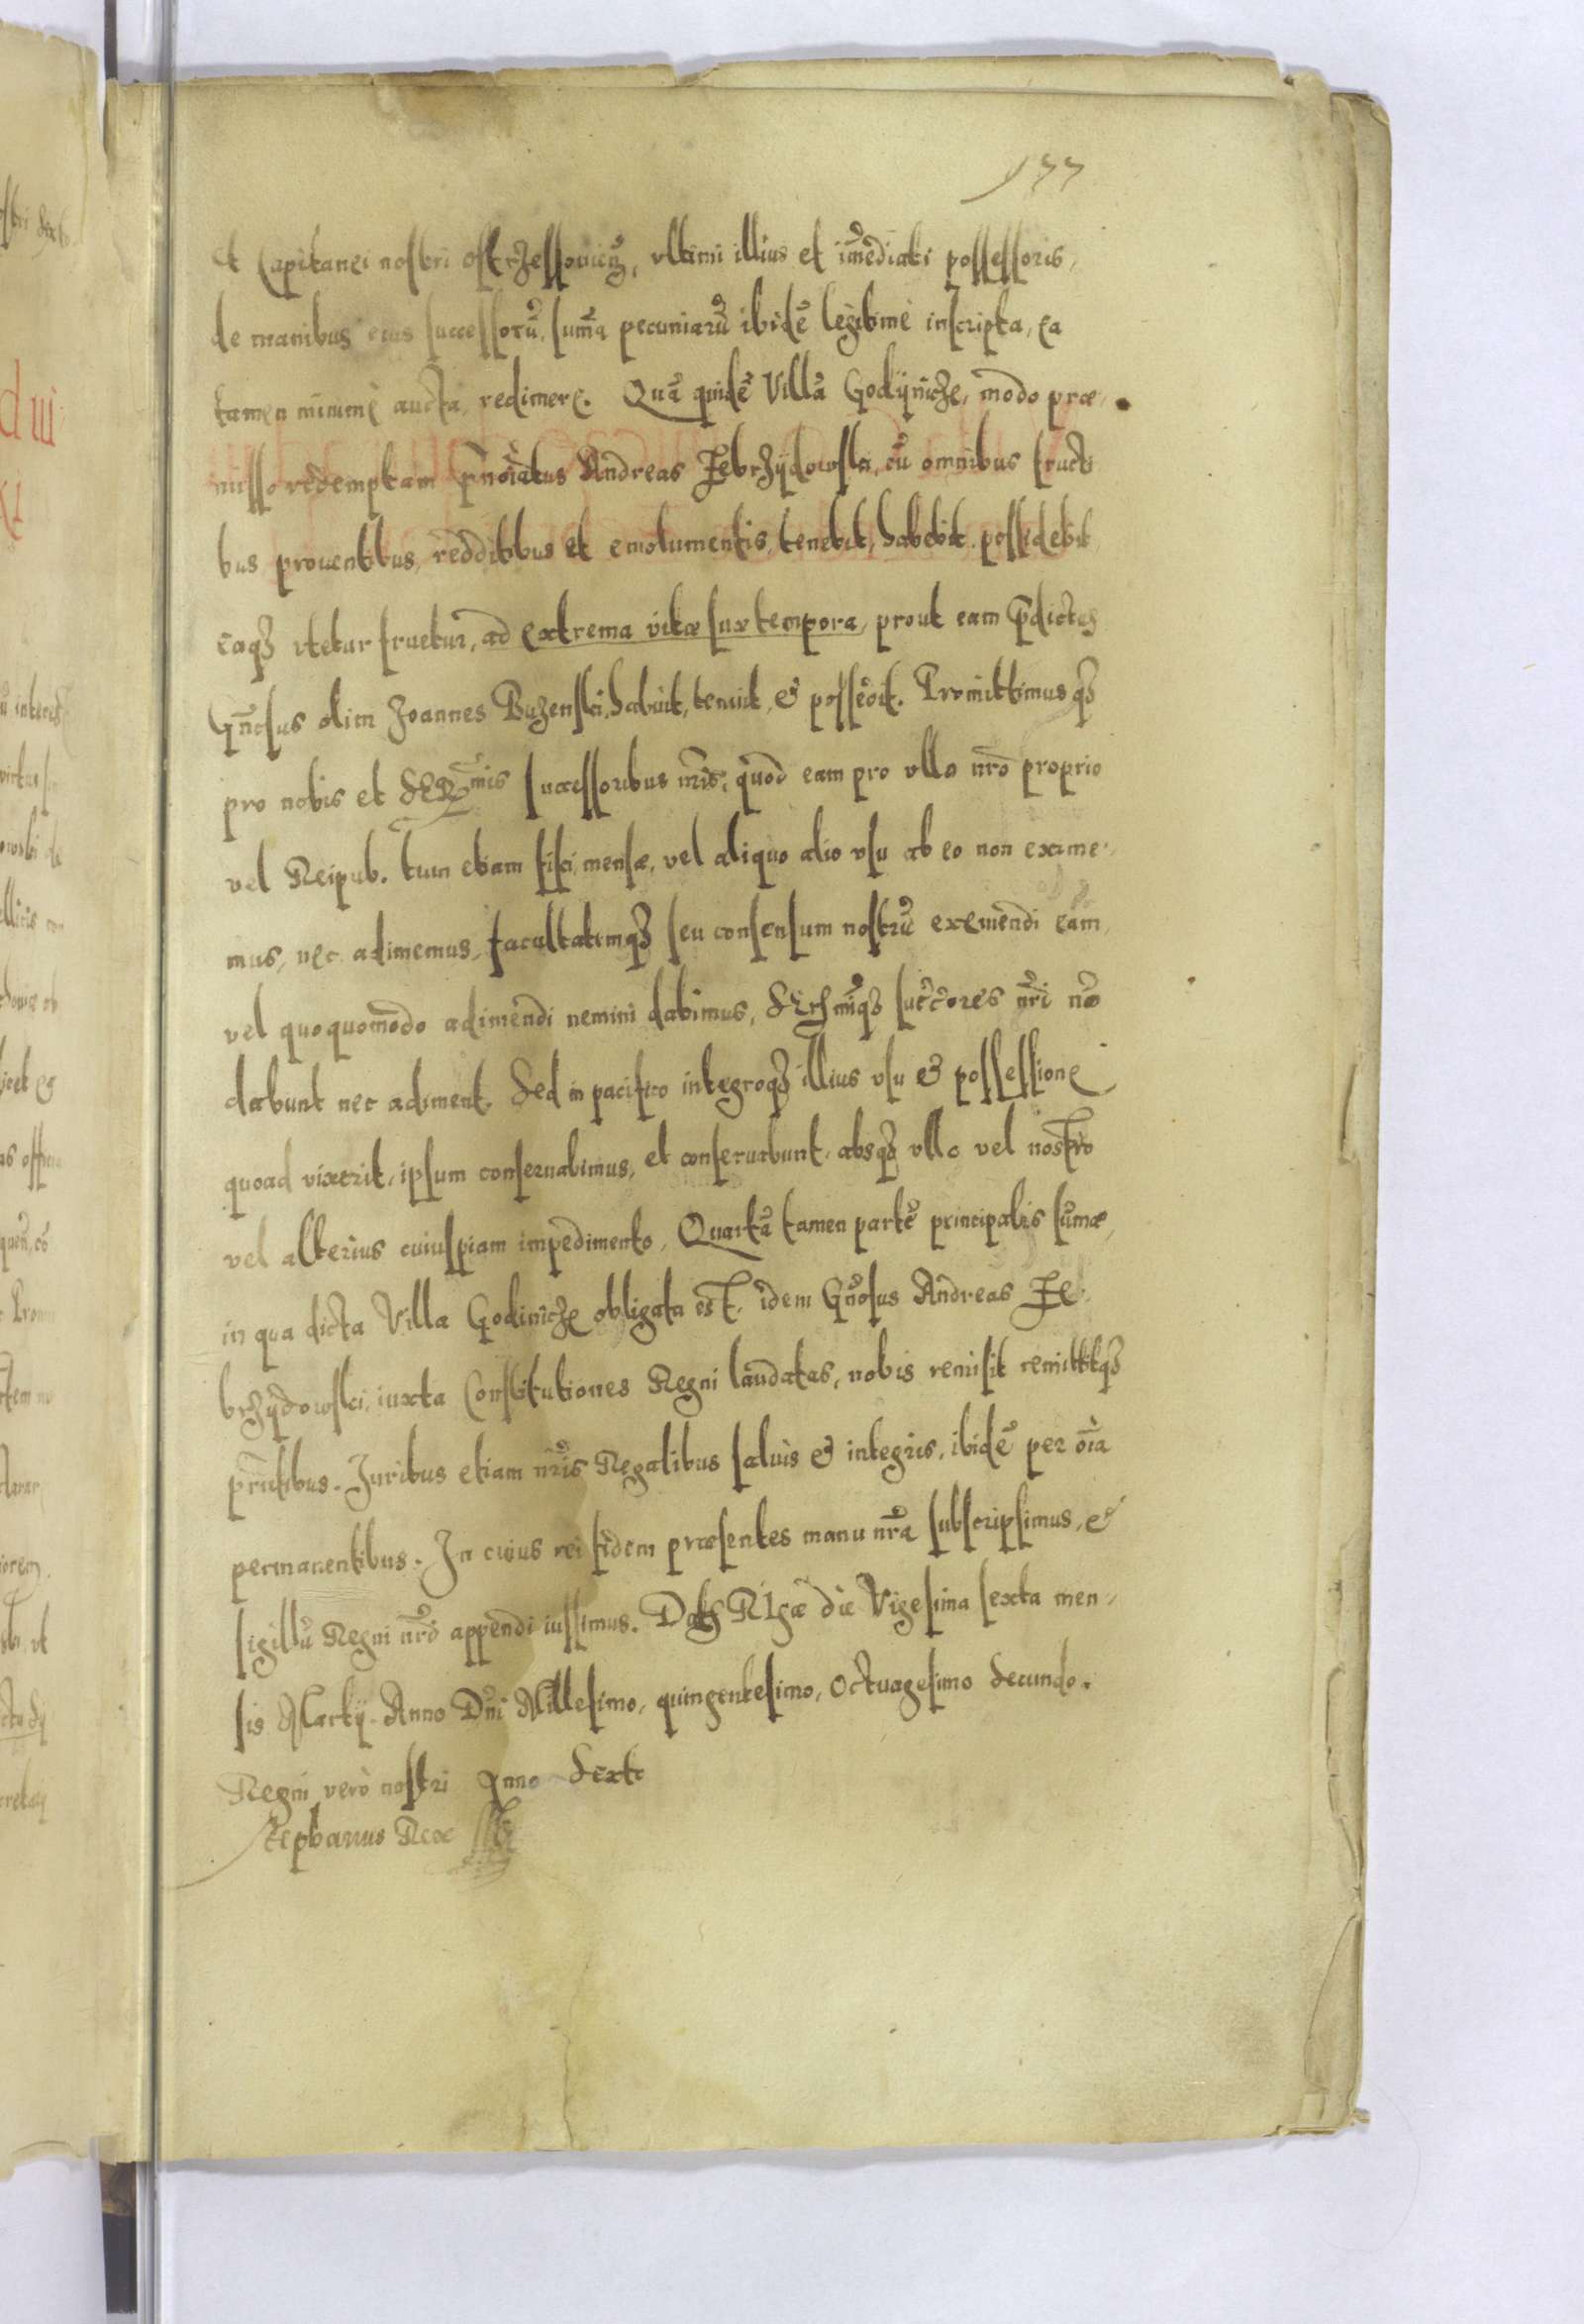 177
et Capitanei nostri Ostrzessouień, vltimi illius et im̃ediati possessoris,
de manibus eius successorũ, sum̃a pecuniarũ ibidẽ legitimè inscripta, ea
tamen minimè aucta, redimere. Quã quidẽ Villã Godÿnicze, modo præ-
misso redemptam p̃noĩatus Andreas Zebrzÿdowski, cũ omnibus fructi
bus prouentibus, redditibus et emolumentis, tenebit, habebit, possidebit
eaq3 vtetur fruetur, ad extrema vitæ suæ tempora, prout eam p̃dictus
Gñosus olim Joannes Buzenski, habuit, tenuit, & possedit. Promittimusq3
pro nobis et SERmis successoribus nr̃is, quod eam pro vllo nr̃o proprio
vel Reipub. tum etiam fisci, mensæ, vel aliquo alio vsu ab eo non exime-
mus, nec adimemus, facultatemq3 seu consensum nostrũ eximendi eam,
vel quoquomodo adimendi nemini dabimus, Sermiq3 succ̃ores nr̃i nõ
dabunt nec adiment. Sed in pacifico integroq3 illius vsu & possessione
quoad vixerit, ipsum conseruabimus, et conseruabunt, absq3 vllo vel nostro
vel alterius cuiuspiam impedimento, Quartã tamen partẽ principalis sum̃æ,
in qua dicta Villa Godinicze obligata est, idem Gñosus Andreas Ze-
brzÿdowski, iuxta Constitutiones Regni laudatas, nobis remisit remittitq3
pñtibus. Juribus etiam nr̃is Regalibus saluis & integris, ibidẽ per oĩa
permanentibus. In cuius rei fidem præsentes manu nr̃a subscripsimus, &
sigillũ Regni nr̃o appendi iussimus. Dat Rigæ die Vigesima sexta men-
sis Martÿ. Anno Dñi Millesimo, quingentesimo, Octuagesimo Secundo.
Regni verò nostri Anno Sexto
Stephanus Rex